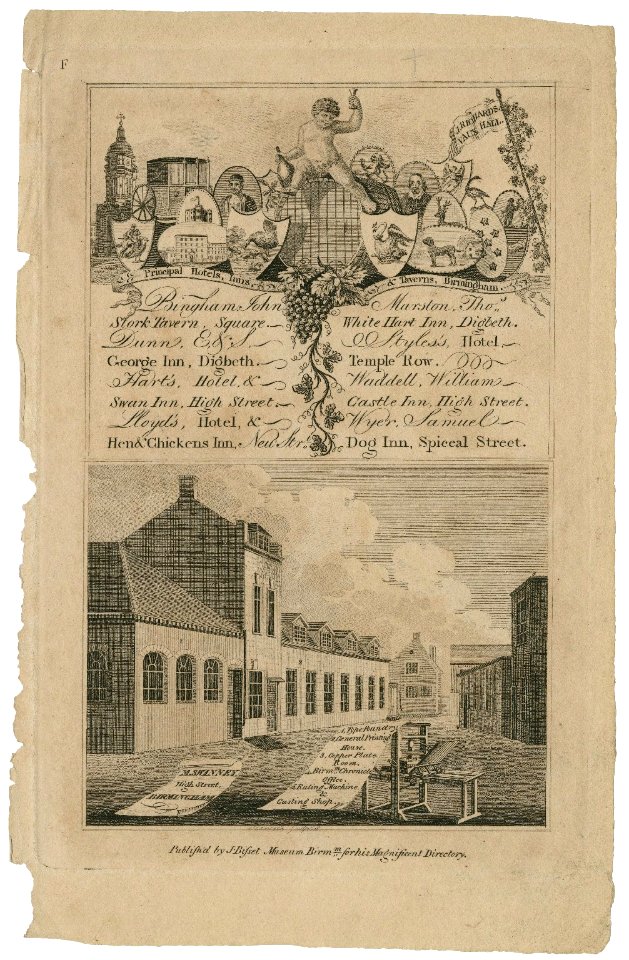 F
J. RICHARDS
VAUX HALL.
Principal Hotels, Inns
& Taverns, Birmingham.
Bingham John
Stork Tavern, Square.
Dunn, E & S,
George Inn, Digbeth.
Hart's, Hotel, &
Swan Inn, High Street.
Lloyd's, Hotel, &
Hen & Chickens Inn, New Str.
Marston, Thos.
White Hart Inn, Digbeth.
Styles's, Hotel
Temple Row.
Waddell, William
Castle Inn, High Street.
Wyer, Samuel
Dog Inn, Spiceal Street.
M. SWINNEY
High Street,
BIRMINGHAM
1. Type Foundry
2. General Printing
House.
3. Copper Plate
Room.
4. Birmm. Chronicle
Office.
5. Ruling Machine
&
Casting Shop.
Publish'd by J. Bisset Museum Birmm. for his Magnificent Directory.